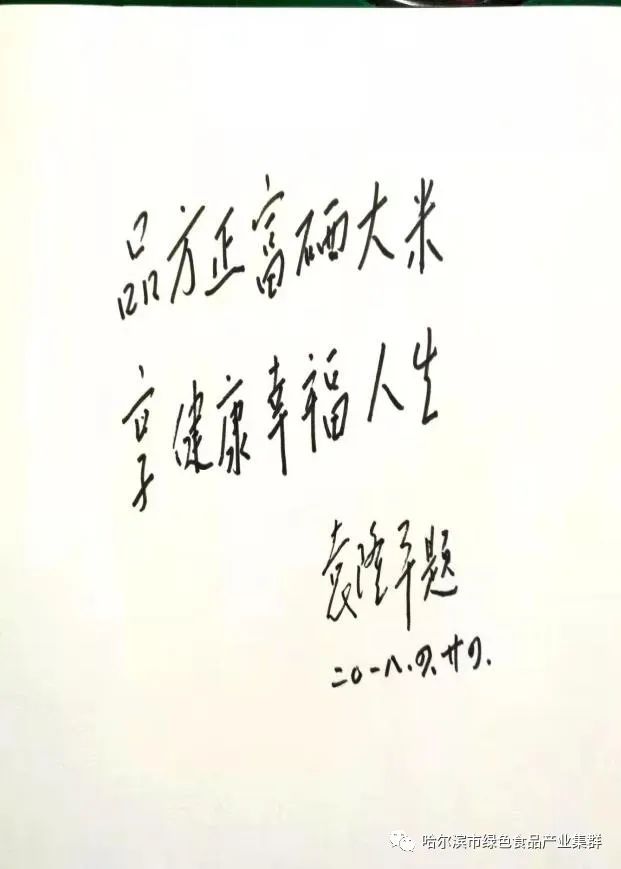 品方正富硒大米
享健康幸福人生
袁隆平题
二〇一八.四.廿四.
哈尔滨市绿色食品产业集群